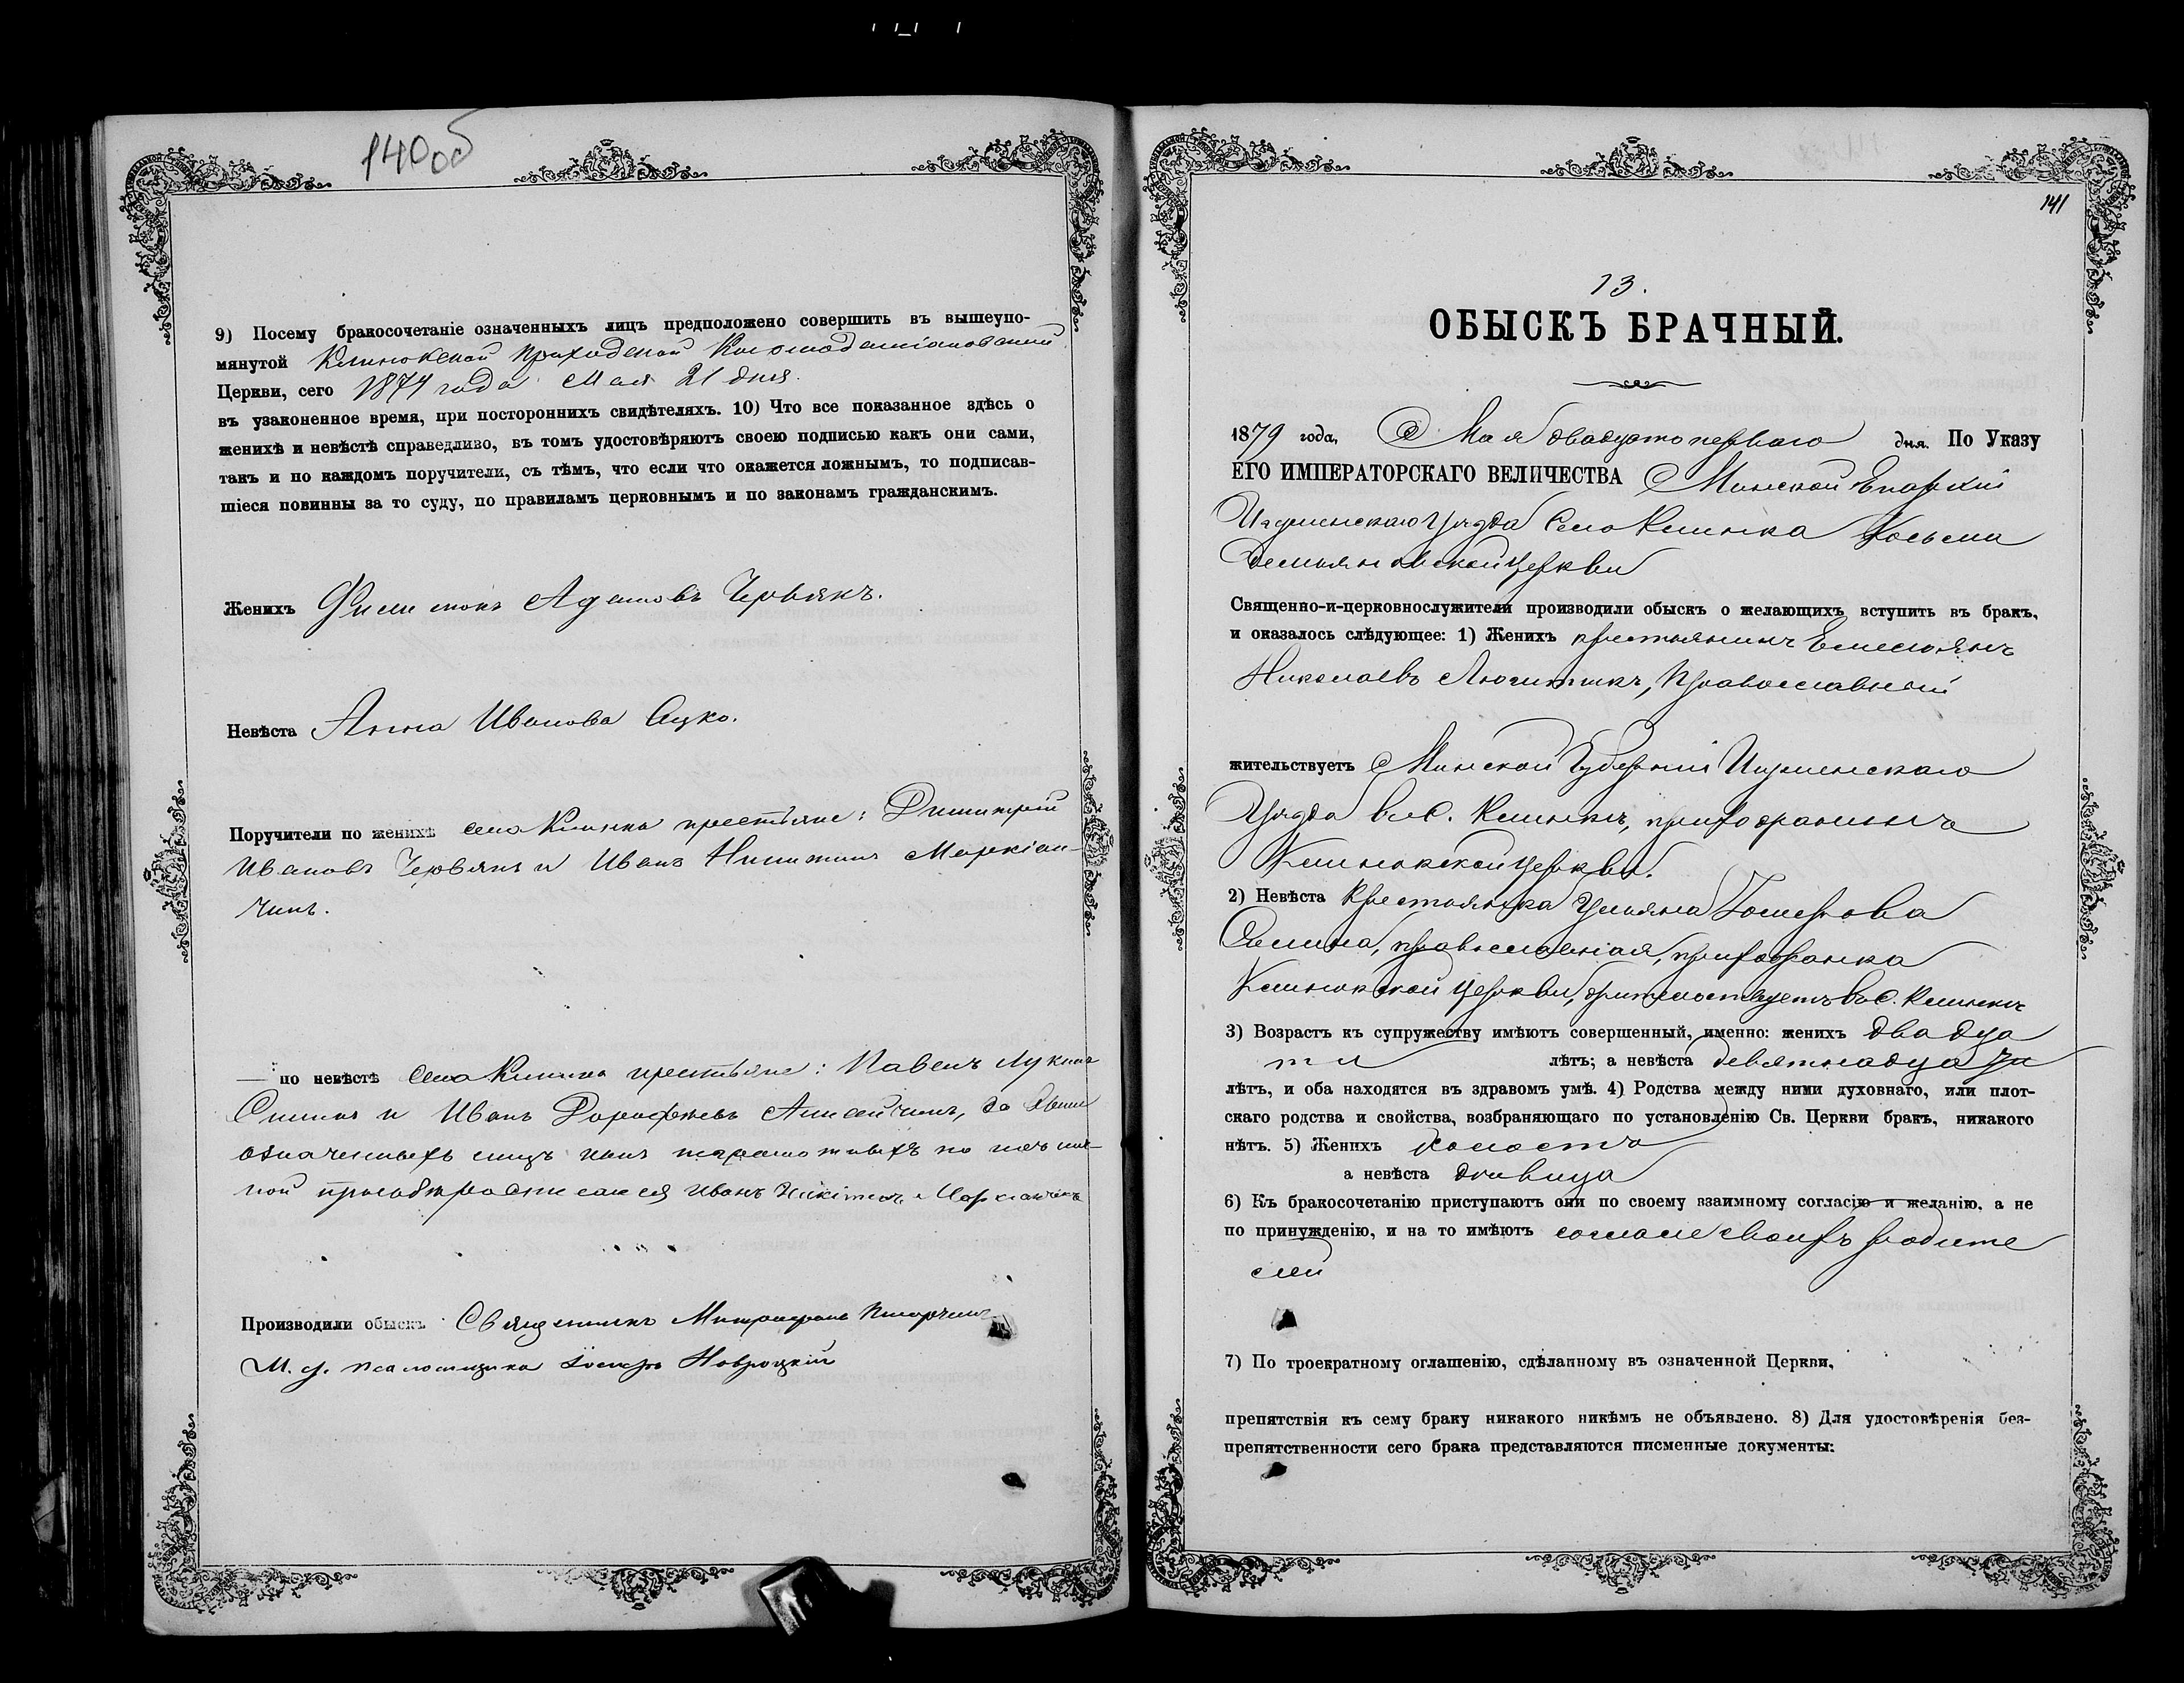 140об
9) Посему бракосочетаніе означенныхъ лицъ предположено совершить въ вышеупо-
мянутой Клинокской Приходской Космодаміановской
Церкви, сего 1879 года Мая 21 дня.
въ узаконенное время, при постороннихъ свидѣтеляхъ. 10) Что все показанное здѣсь о
женихѣ и невѣстѣ справедливо, въ томъ удостовѣряютъ своею подписью какъ они сами,
такъ и по каждомъ поручители, съ тѣмъ, что если что окажется ложнымъ, то подписав-
шіеся повинны за то суду, по правиламъ церковнымъ и по законамъ гражданскимъ.
Женихъ Филимонъ Адамовъ Червякъ.
Невѣста Анна Иванова Сацко.
Поручители по женихѣ села Клинка крестьяне: Димитрій
Ивановъ Червякъ и Иванъ Никитинъ Маркіан-
чикъ.
— по невѣстѣ села Клинка крестьяне: Павелъ Лукинъ
и Иванъ Дорофѣевъ
означенныхъ лицъ неграмотныхъ по ихъ лич-
ной прозьбѣ росписался Иванъ Никитинъ Маркіанчикъ
Производили обыскъ Священникъ Митрофанъ
И. д. псаломщика Іосифъ Навроцкій
141
13.
ОБЫСКЪ БРАЧНЫЙ.
1879 года, Мая двадцать перваго дня. По Указу
ЕГО ИМПЕРАТОРСКАГО ВЕЛИЧЕСТВА Минской Епархіи
Игуменскаго Уѣзда Села Клинка Косьма
Демьяновской Церкви
Священно-и-церковнослужители производили обыскъ о желающихъ вступить въ бракъ,
и оказалось слѣдующее: 1) Женихъ крестьянинъ Емельянъ
Николаевъ Православный
жительствуетъ Минской Губерніи Игуменскаго
Уѣзда въ с. Клинкѣ, прихожанинъ
Клинокской Церкви.
2) Невѣста Крестьянка Ульяна
православная, прихожанка
Клинокской Церкви, жительствуетъ въ с. Клинкѣ
3) Возрастъ къ супружеству имѣютъ совершенный, именно: женихъ двадца
ти лѣтъ; а невѣста девятнадца ти
лѣтъ, и оба находятся въ здравомъ умѣ. 4) Родства между ними духовнаго, или плот-
скаго родства и свойства, возбраняющаго по установленію Св. Церкви бракъ, никакого
нѣтъ. 5) Женихъ холостъ
а невѣста дѣвица
6) Къ бракосочетанію приступаютъ они по своему взаимному согласію и желанію, а не
по принужденію, и на то имѣютъ согласіе своихъ родите
лей
7) По троекратному оглашенію, сдѣланному въ означенной Церкви,
препятствія къ сему браку никакого никѣмъ не объявлено. 8) Для удостовѣренія без-
препятственности сего брака представляются писменные документы: